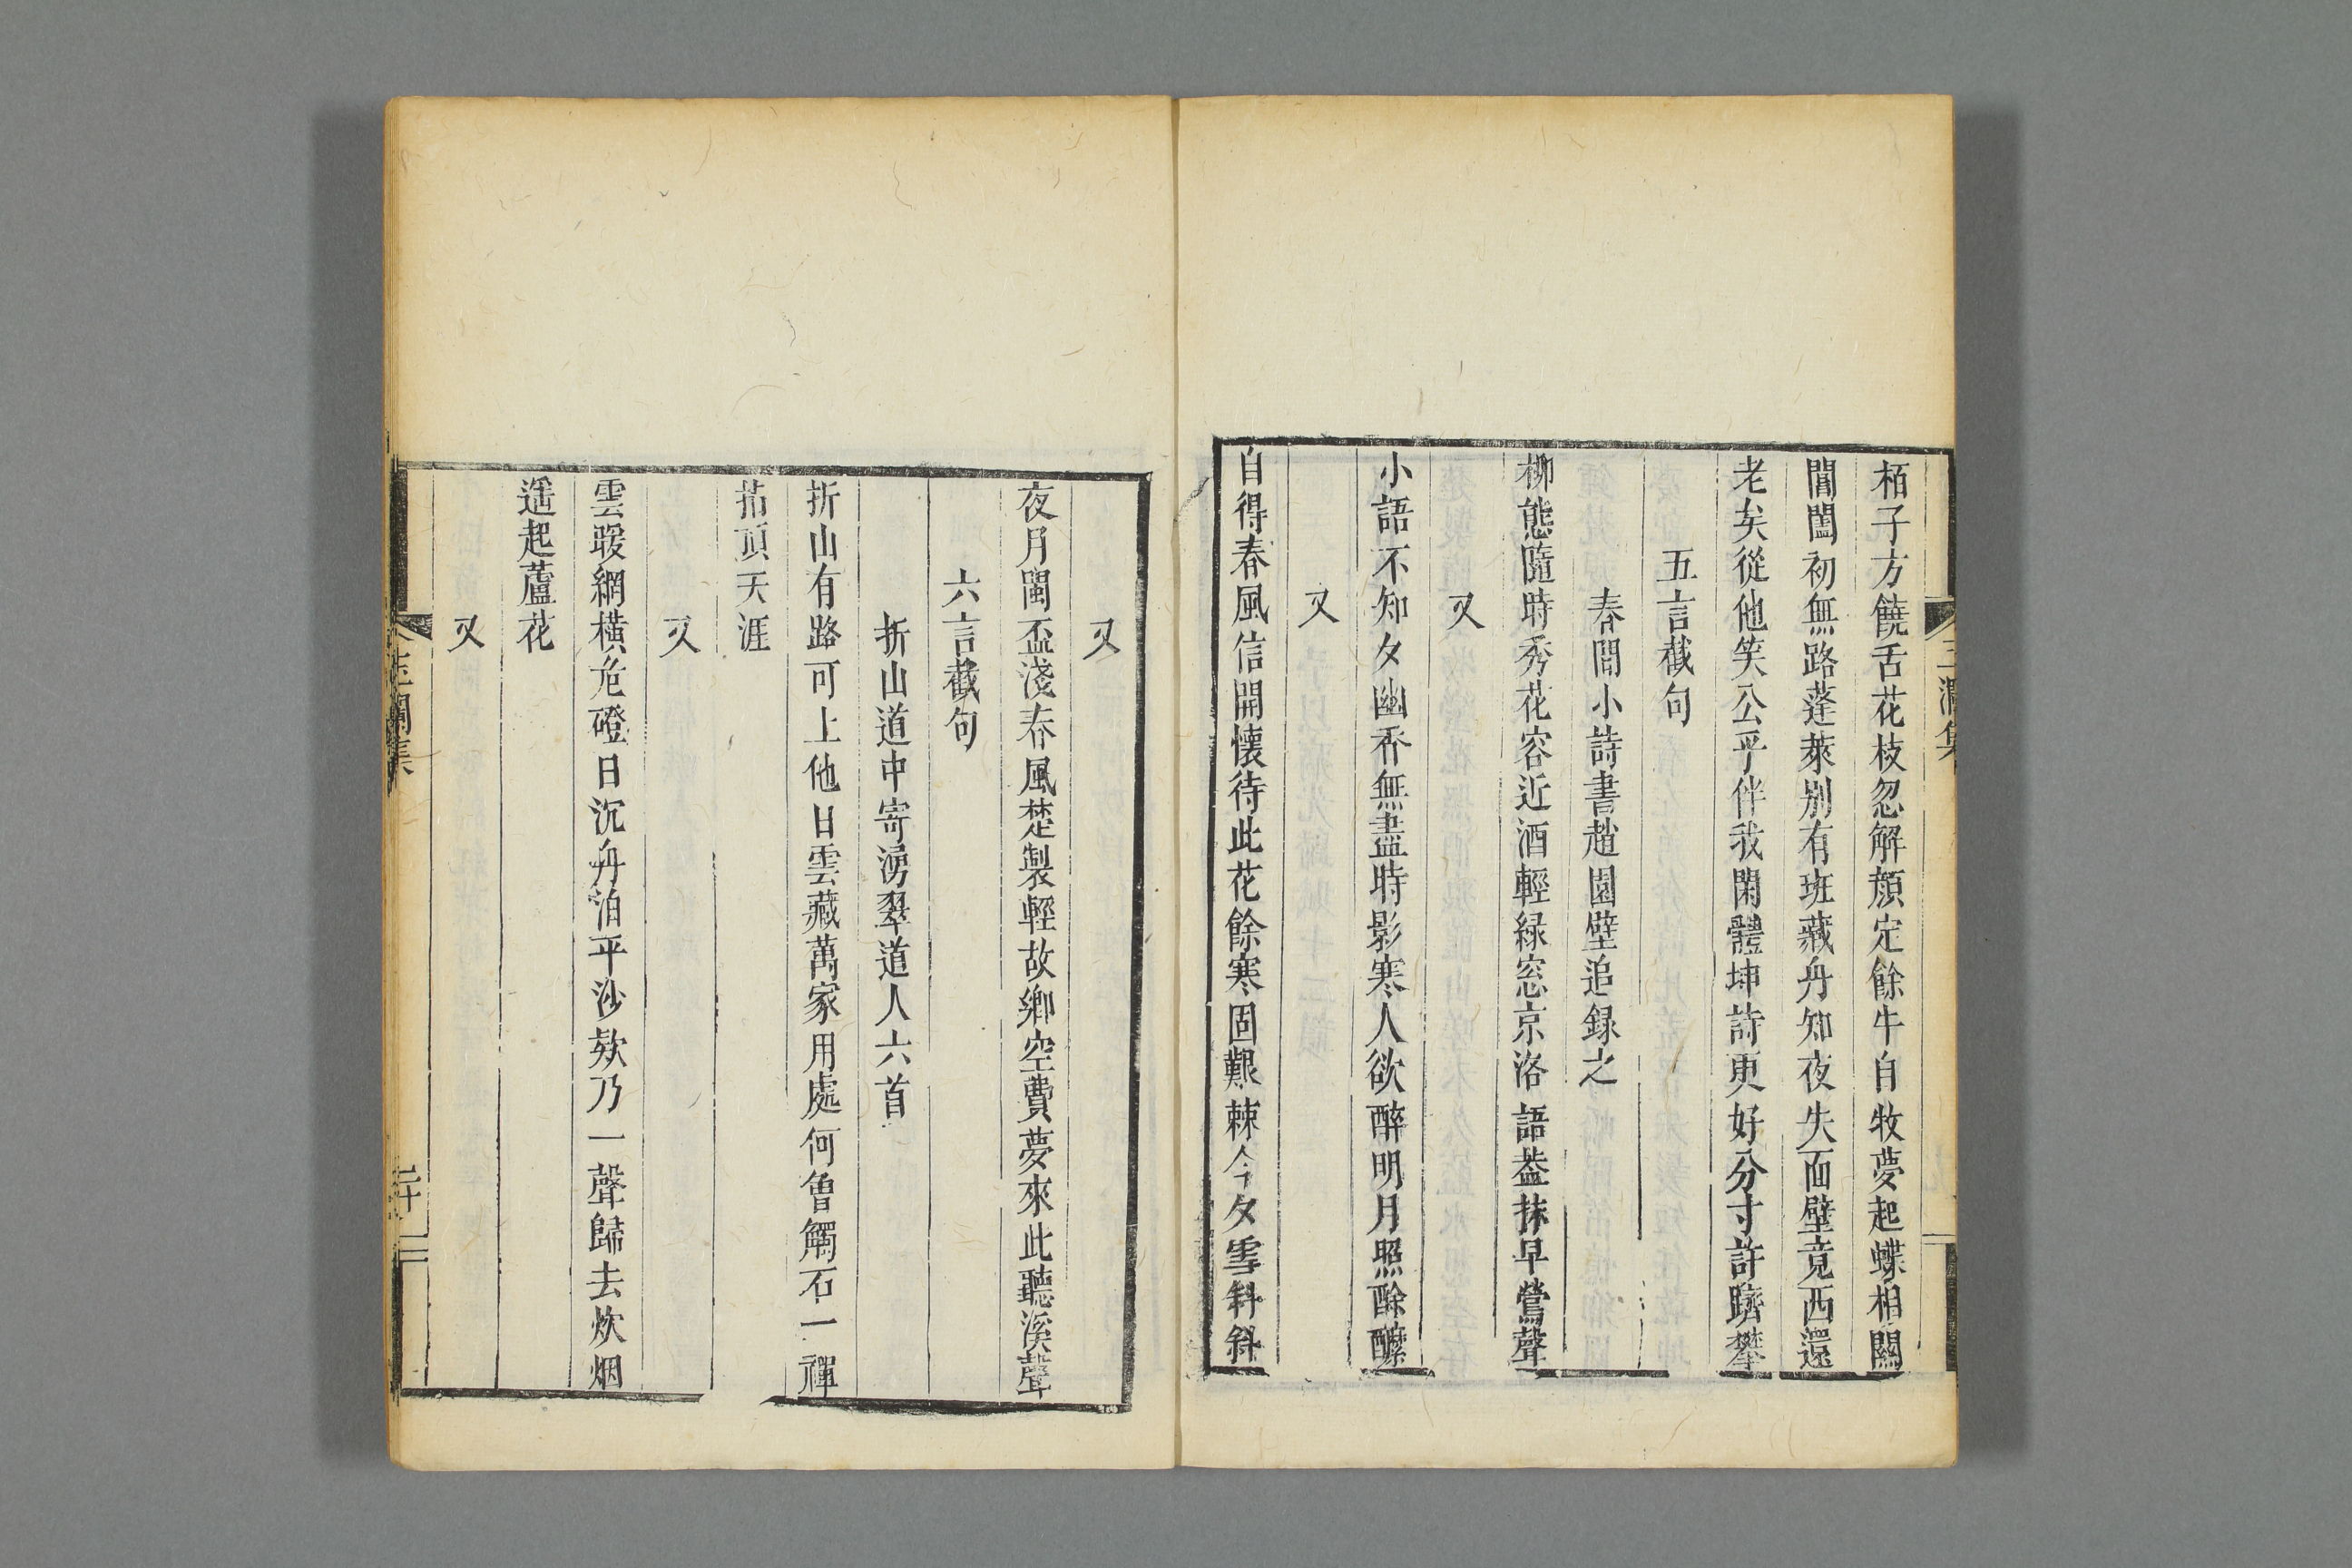 栢子方饒舌花枝忽解顔定餘牛自牧夢起蝶相關
閶闔初無路蓬萊别有班藏丹知夜失面壁竟西還
老矣從他笑公乎伴我閑體坤詩更好分寸許躋攀
五言截句
春閒小詩書趙園壁追録之
柳態隨時秀花容近酒輕緑窓京洛語葢抹早鶯聲
又
小語不知夕幽香無盡時影寒人欲醉明月照酴醿
又
自得春風信開懐待此花餘寒固艱棘今夕雪斜斜
又
夜月閩盃淺春風楚製輕故鄉空費夢來此聽溪聲
六言截句
折山道中寄湧翠道人六首
折山有路可上他日雲藏萬家用處何曾觸石一禪
拈頂天涯
又
雲暖網横危磴日沉舟泊平沙欸乃一聲歸去炊烟
遥起蘆花
又
三十